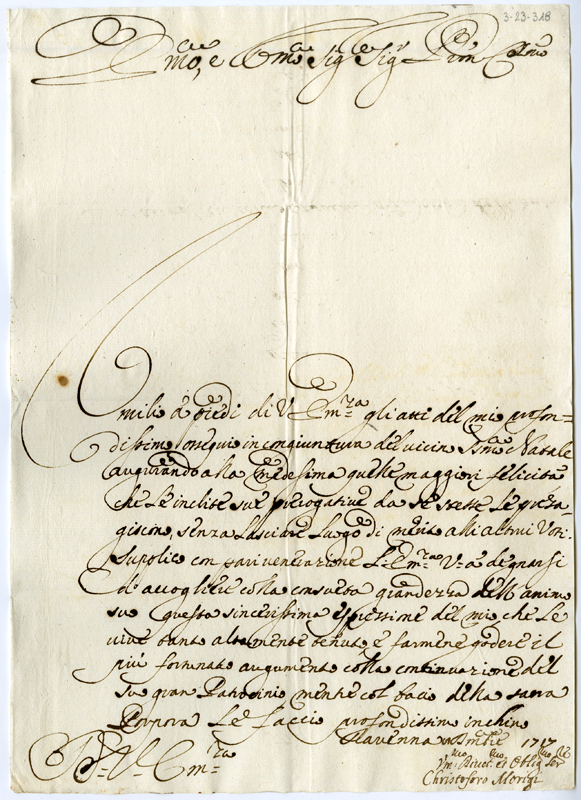 3-23-318
Em̄o, e Rm̄o Sigr Sigr Pron Colmo
Umilio a piedi di V. Emza gli atti del mio profon=
dissimo ossequio in congiuntura del vicin Ssmo Natale
augurando alla medesima quelle maggiori felicità
che le inclite sue prerogative da se stesse le presa
giscon, senza lasciare luogo di merito alli altrui Voti.
Supplico con pari venerazione l'Emza Va degnarsi
d'accogliere colla consueta grandezza dell animo
suo questa sincerissima espressione del mio che le
vive tanto altamente tenuto, e farmene godere il
più fortunato augumento colla continuazione del
suo gran Patrocinio mentre col bacio della sacra
Porpora le faccio profondissimo inchino
Ravenna Xmbre 1717
Di V. Emza
Vmo Divotmo et Obligmo Ser
Christoforo Morigi